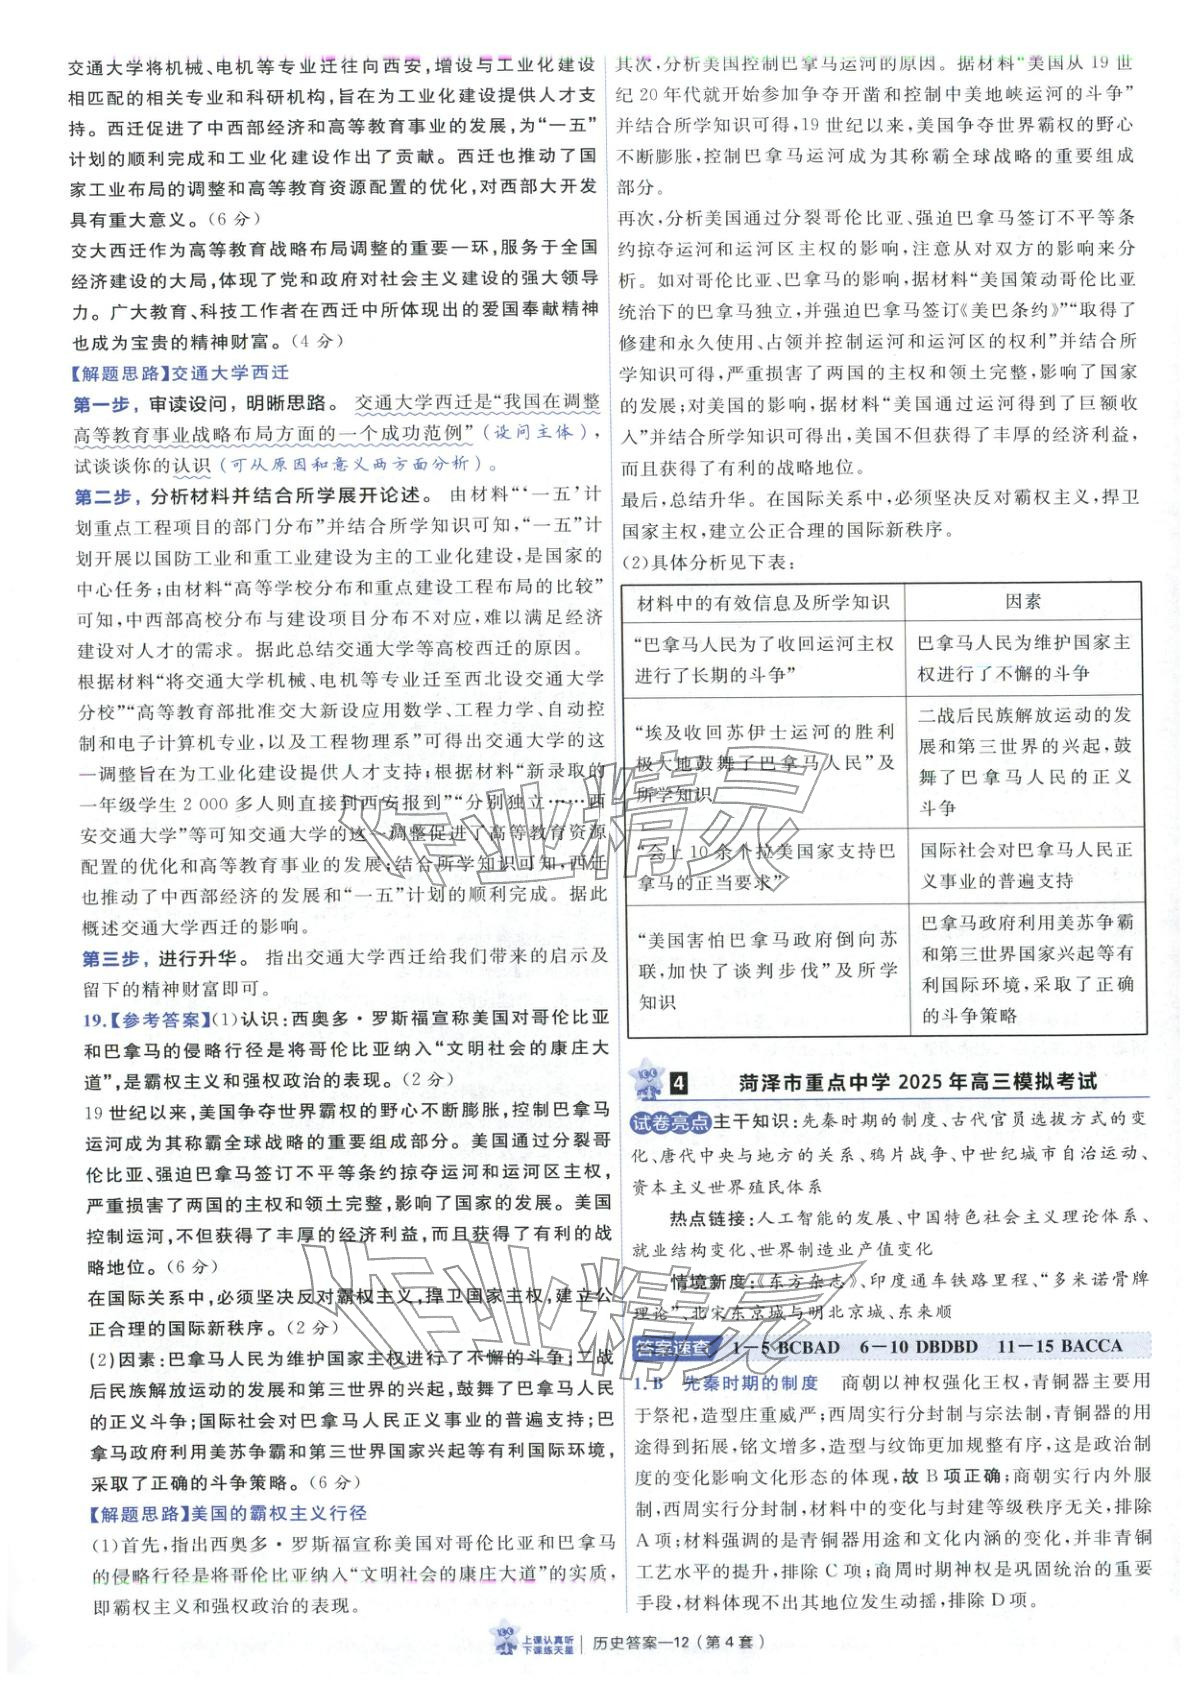 交通大学将机械、电机等专业迁往向西安,增设与工业化建设
相匹配的相关专业和科研机构,旨在为工业化建设提供人才支
持。西迁促进了中西部经济和高等教育事业的发展,为“一五”
计划的顺利完成和工业化建设作出了贡献。西迁也推动了国
家工业布局的调整和高等教育资源配置的优化,对西部大开发
具有重大意义。(6 分)
交大西迁作为高等教育战略布局调整的重要一环,服务于全国
经济建设的大局,体现了党和政府对社会主义建设的强大领导
力。广大教育、科技工作者在西迁中所体现出的爱国奉献精神
也成为宝贵的精神财富。(4 分)
【解题思路】交通大学西迁
第一步,审读设问,明晰思路。 交通大学西迁是“我国在调整
高等教育事业战略布局方面的一个成功范例”(设问主体),
试谈谈你的认识(可从原因和意义两方面分析)。
第二步,分析材料并结合所学展开论述。 由材料“‘一五’计
划重点工程项目的部门分布”并结合所学知识可知,“一五”计
划开展以国防工业和重工业建设为主的工业化建设,是国家的
中心任务;由材料“高等学校分布和重点建设工程布局的比较”
可知,中西部高校分布与建设项目分布不对应,难以满足经济
建设对人才的需求。据此总结交通大学等高校西迁的原因。
根据材料“将交通大学机械、电机等专业迁至西北设交通大学
分校”“高等教育部批准交大新设应用数学、工程力学、自动控
制和电子计算机专业,以及工程物理系”可得出交通大学的这
一调整旨在为工业化建设提供人才支持;根据材料“新录取的
一年级学生 2 000 多人则直接到西安报到”“分别独立……西
安交通大学”等可知交通大学的这一调整促进了高等教育资源
配置的优化和高等教育事业的发展;结合所学知识可知,西迁
也推动了中西部经济的发展和“一五”计划的顺利完成。据此
概述交通大学西迁的影响。
第三步,进行升华。 指出交通大学西迁给我们带来的启示及
留下的精神财富即可。
19.【参考答案】(1)认识:西奥多·罗斯福宣称美国对哥伦比亚
和巴拿马的侵略行径是将哥伦比亚纳入“文明社会的康庄大
道”,是霸权主义和强权政治的表现。(2 分)
19 世纪以来,美国争夺世界霸权的野心不断膨胀,控制巴拿马
运河成为其称霸全球战略的重要组成部分。美国通过分裂哥
伦比亚、强迫巴拿马签订不平等条约掠夺运河和运河区主权,
严重损害了两国的主权和领土完整,影响了国家的发展。美国
控制运河,不但获得了丰厚的经济利益,而且获得了有利的战
略地位。(6 分)
在国际关系中,必须坚决反对霸权主义,捍卫国家主权,建立公
正合理的国际新秩序。(2 分)
(2)因素:巴拿马人民为维护国家主权进行了不懈的斗争;二战
后民族解放运动的发展和第三世界的兴起,鼓舞了巴拿马人民
的正义斗争;国际社会对巴拿马人民正义事业的普遍支持;巴
拿马政府利用美苏争霸和第三世界国家兴起等有利国际环境,
采取了正确的斗争策略。(6 分)
【解题思路】美国的霸权主义行径
(1)首先,指出西奥多·罗斯福宣称美国对哥伦比亚和巴拿马
的侵略行径是将哥伦比亚纳入“文明社会的康庄大道”的实质,
即霸权主义和强权政治的表现。
其次,分析美国控制巴拿马运河的原因。据材料“美国从 19 世
纪 20 年代就开始参加争夺开凿和控制中美地峡运河的斗争”
并结合所学知识可得,19 世纪以来,美国争夺世界霸权的野心
不断膨胀,控制巴拿马运河成为其称霸全球战略的重要组成
部分。
再次,分析美国通过分裂哥伦比亚、强迫巴拿马签订不平等条
约掠夺运河和运河区主权的影响,注意从对双方的影响来分
析。如对哥伦比亚、巴拿马的影响,据材料“美国策动哥伦比亚
统治下的巴拿马独立,并强迫巴拿马签订《美巴条约》”“取得了
修建和永久使用、占领并控制运河和运河区的权利”并结合所
学知识可得,严重损害了两国的主权和领土完整,影响了国家
的发展;对美国的影响,据材料“美国通过运河得到了巨额收
入”并结合所学知识可得出,美国不但获得了丰厚的经济利益,
而且获得了有利的战略地位。
最后,总结升华。在国际关系中,必须坚决反对霸权主义,捍卫
国家主权,建立公正合理的国际新秩序。
(2)具体分析见下表:
材料中的有效信息及所学知识 因素
“巴拿马人民为了收回运河主权
进行了长期的斗争”
巴拿马人民为维护国家主
权进行了不懈的斗争
“埃及收回苏伊士运河的胜利
极大地鼓舞了巴拿马人民”及
所学知识
二战后民族解放运动的发
展和第三世界的兴起,鼓
舞了巴拿马人民的正义
斗争
“会上 10 余个拉美国家支持巴
拿马的正当要求”
国际社会对巴拿马人民正
义事业的普遍支持
“美国害怕巴拿马政府倒向苏
联,加快了谈判步伐”及所学
知识
巴拿马政府利用美苏争霸
和第三世界国家兴起等有
利国际环境,采取了正确
的斗争策略
4 菏泽市重点中学 2025 年高三模拟考试
试卷亮点 主干知识:先秦时期的制度、古代官员选拔方式的变
化、唐代中央与地方的关系、鸦片战争、中世纪城市自治运动、
资本主义世界殖民体系
热点链接:人工智能的发展、中国特色社会主义理论体系、
就业结构变化、世界制造业产值变化
情境新度:《东方杂志》、印度通车铁路里程、“多米诺骨牌
理论”、北宋东京城与明北京城、东来顺
答案速查 1—5 BCBAD 6—10 DBDBD 11—15 BACCA
1. B 先秦时期的制度 商朝以神权强化王权,青铜器主要用
于祭祀,造型庄重威严;西周实行分封制与宗法制,青铜器的用
途得到拓展,铭文增多,造型与纹饰更加规整有序,这是政治制
度的变化影响文化形态的体现,故 B 项正确;商朝实行内外服
制,西周实行分封制,材料中的变化与封建等级秩序无关,排除
A 项;材料强调的是青铜器用途和文化内涵的变化,并非青铜
工艺水平的提升,排除 C 项;商周时期神权是巩固统治的重要
手段,材料体现不出其地位发生动摇,排除 D 项。
上课认真听
下课练天星
历史答案—12(第 4 套)
作业精灵
作业精灵